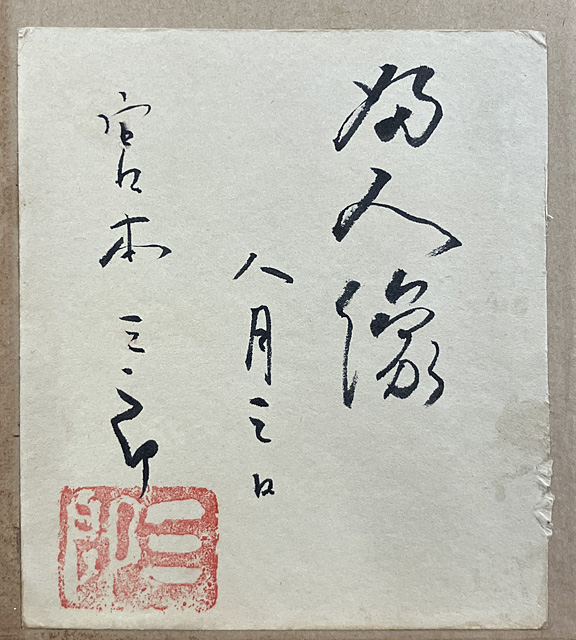 婦人像
八月三日
宮本三郎
三郎